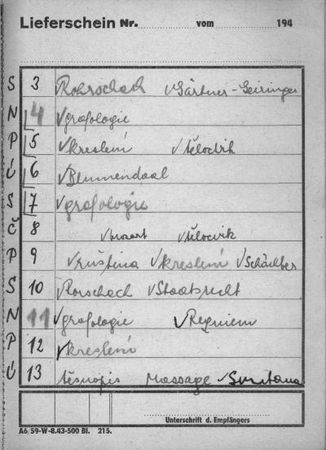 Lieferschein Nr. vom 194
S 3 Rohrschach √Gärtner-Geiringer
N 4 √grafologie
P 5 √kreslení √tělocvik
Ú 6 √Blumendaal
S 7 √grafologie
Č 8 √tělocvik
P 9 √ruština √kreslení √Schächter
S 10 √Rorschach √Staatsrecht
N 11 √grafologie √Requiem
P 12 √kreslení
Ú 13 těsnopis massage √Smetana
Unterschrift d. Empfängers
A6/59-W-8.43-500 Bl. 215.